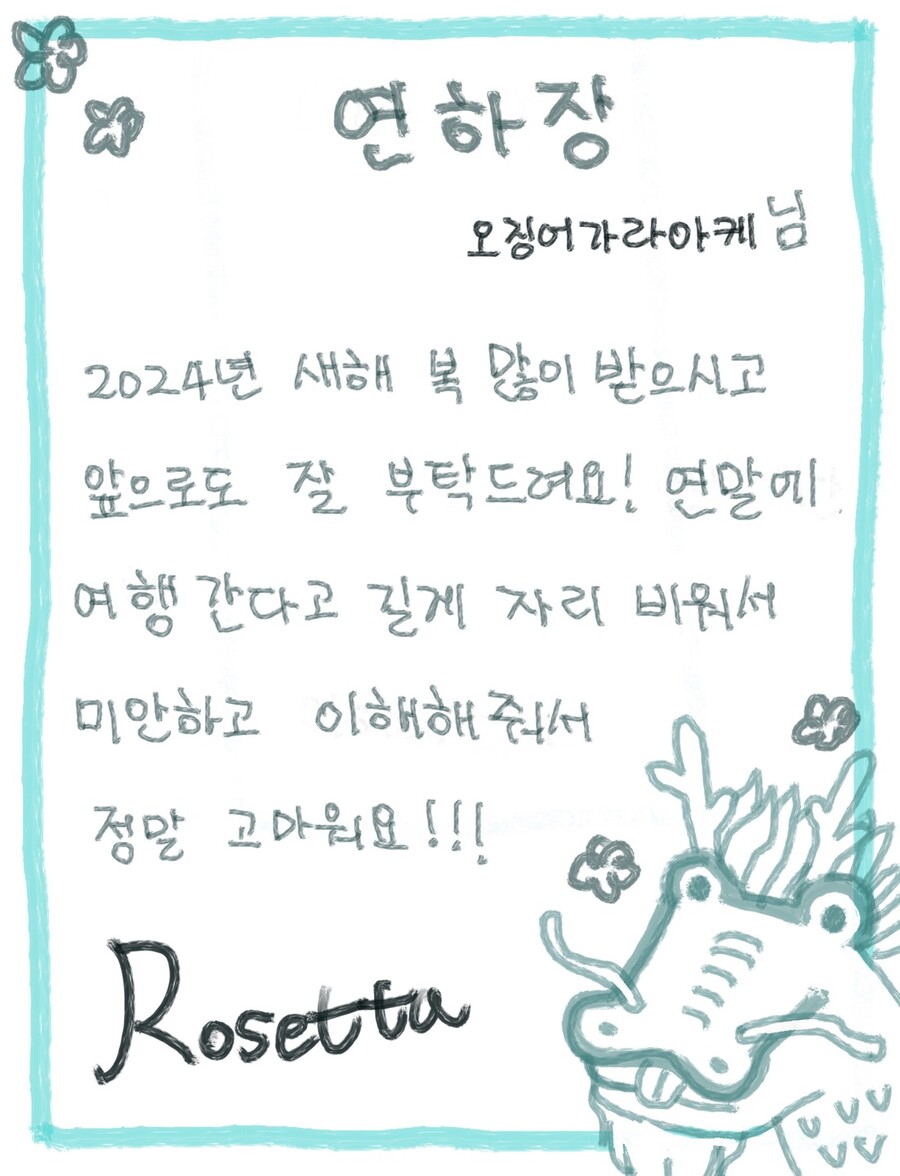 연하장
오징어가라아케님
2024년 새해 복 많이 받으시고
앞으로도 잘 부탁드려요! 연말에
여행 간다고 길게 자리 비워서
미안하고 이해해줘서
정말 고마워요!!!
Rosetta